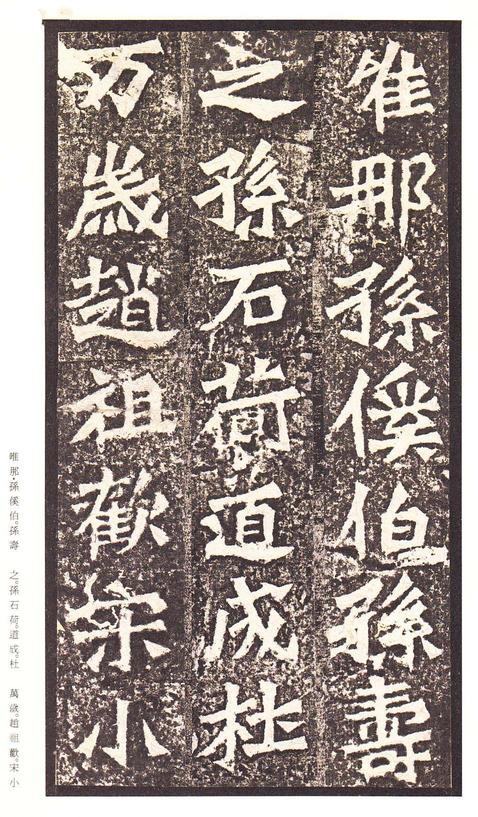 唯那孫傒伯孫壽
之孫石荷道成杜
万歲趙祖歡宋小
唯那孫傒伯。孫壽 之。孫石荷。道成。杜 萬歲。趙祖歡。宋小